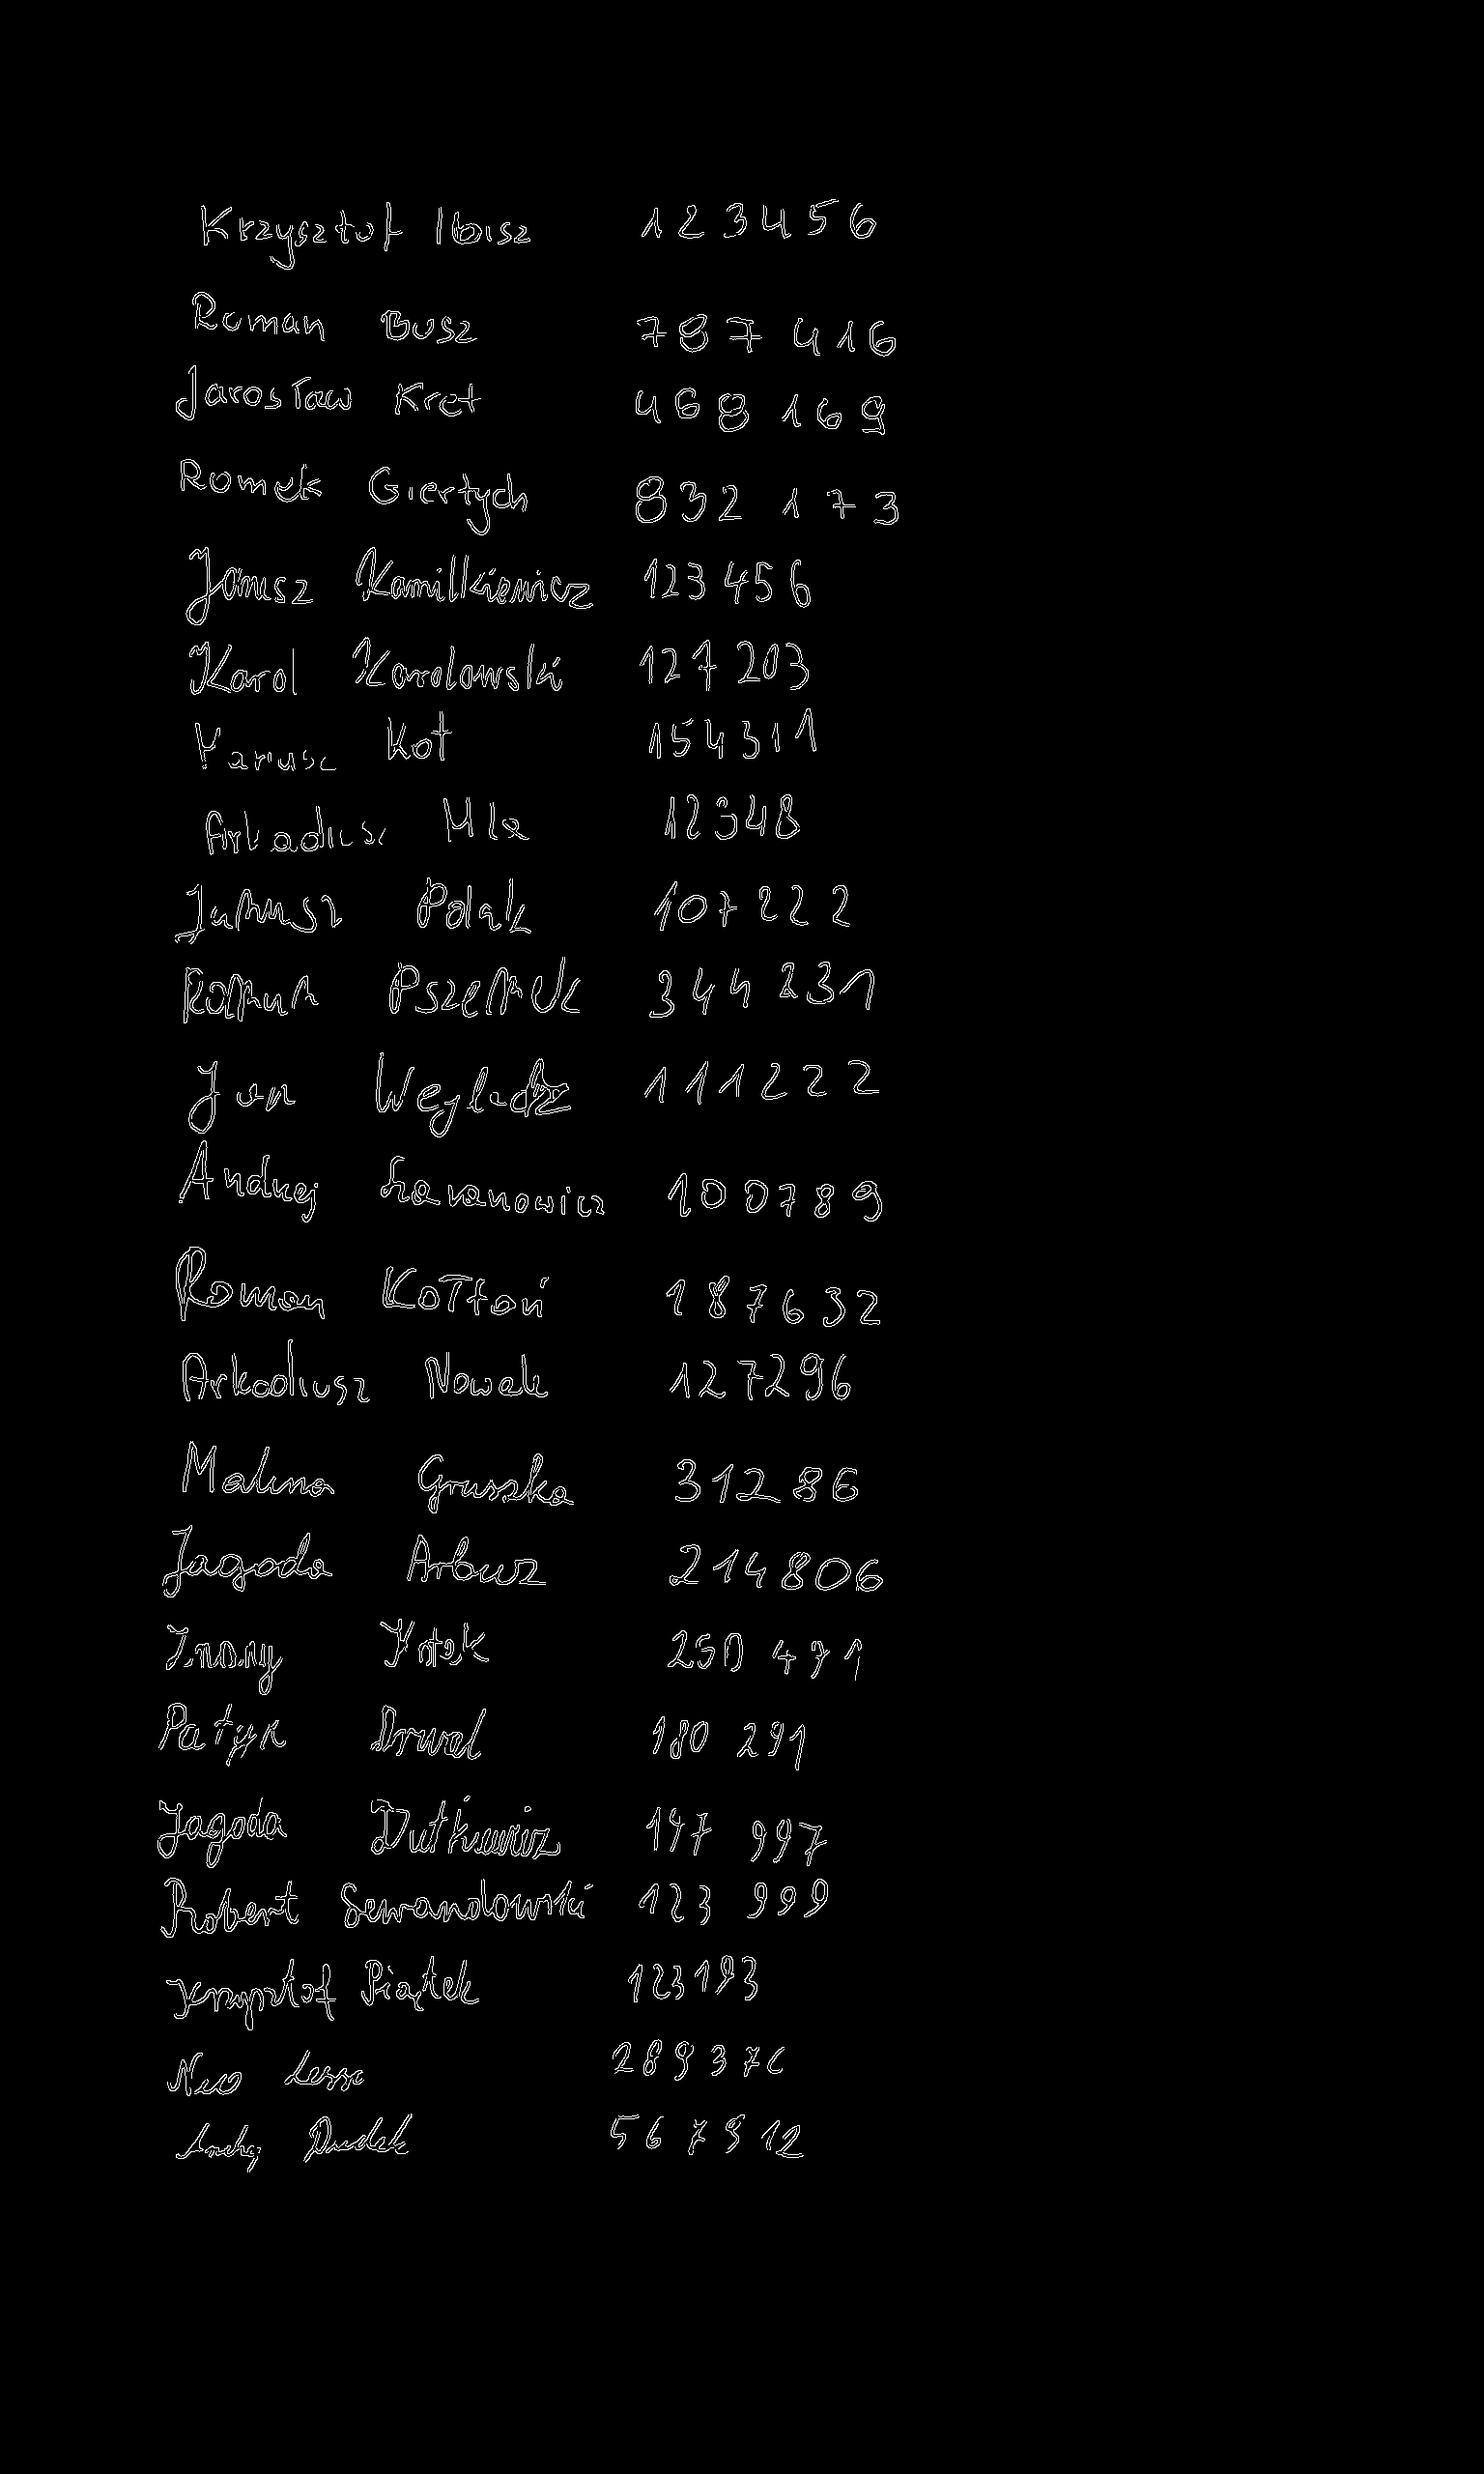 Krzysztof Ibisz 123456
Roman Busz 787416
Jarosław Kret 468169
Romek Giertych 832173
Janusz Kamilkiewicz 123456
Karol Karolowski 127203
Kot 154311
Arkadiusz 12348
Janusz Polak 107222
Roman PszeMek 344231
Jan 111222
Andrzej 100789
Roman Kołtoń 187632
Arkadiusz Nowak 127296
Malina Gruszka 31286
Jagoda Arbuz 214806
471
Patyk Drwal 180 291
Jagoda Dutkiewicz 147 997
Robert 123 999
Krzysztof Piątek 123193
28937
Dudek 567912